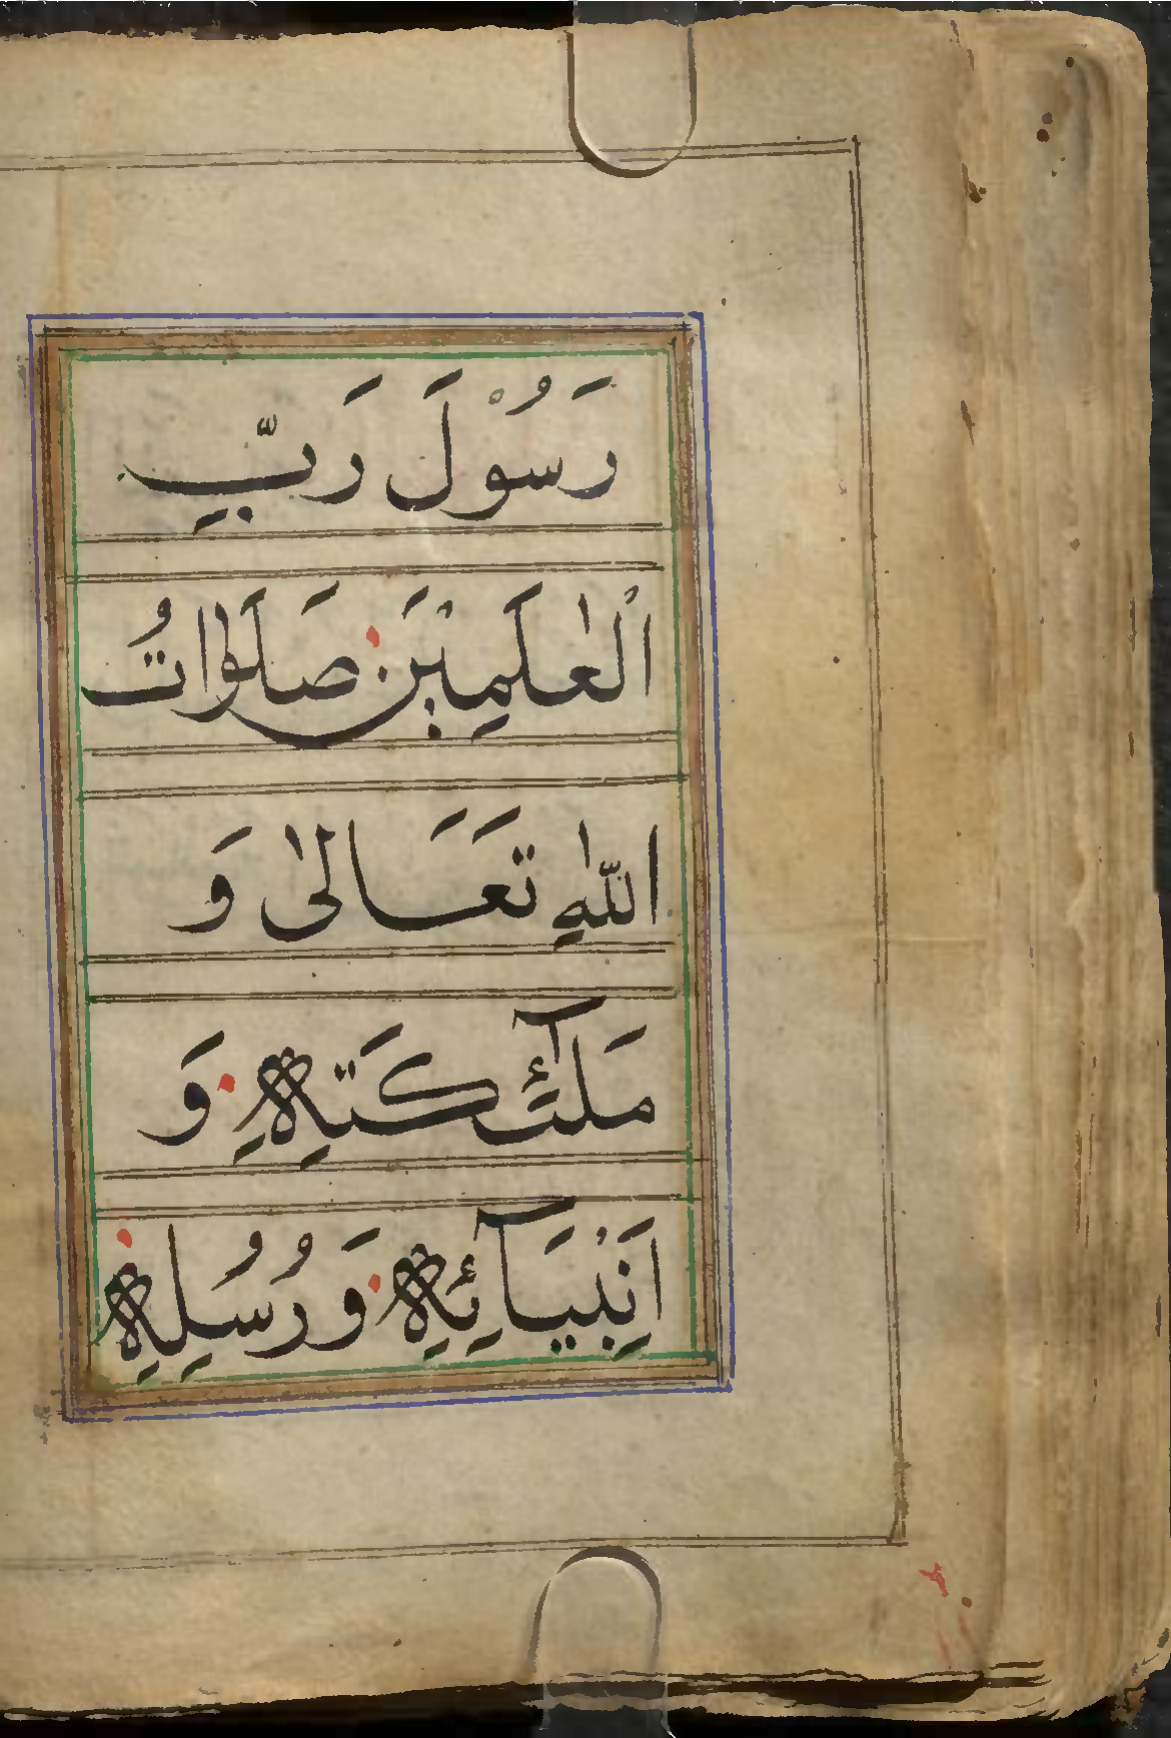 رَسُوْلَ رَبِّ
الْعٰلَمِيْنَ صَلَوٰاتُ
اللّٰهِ تَعَالىٰ وَ
مَلٰٓئِكَتِهٖ وَ
اَنْبِيَآئِهٖ وَرُسُلِهٖ